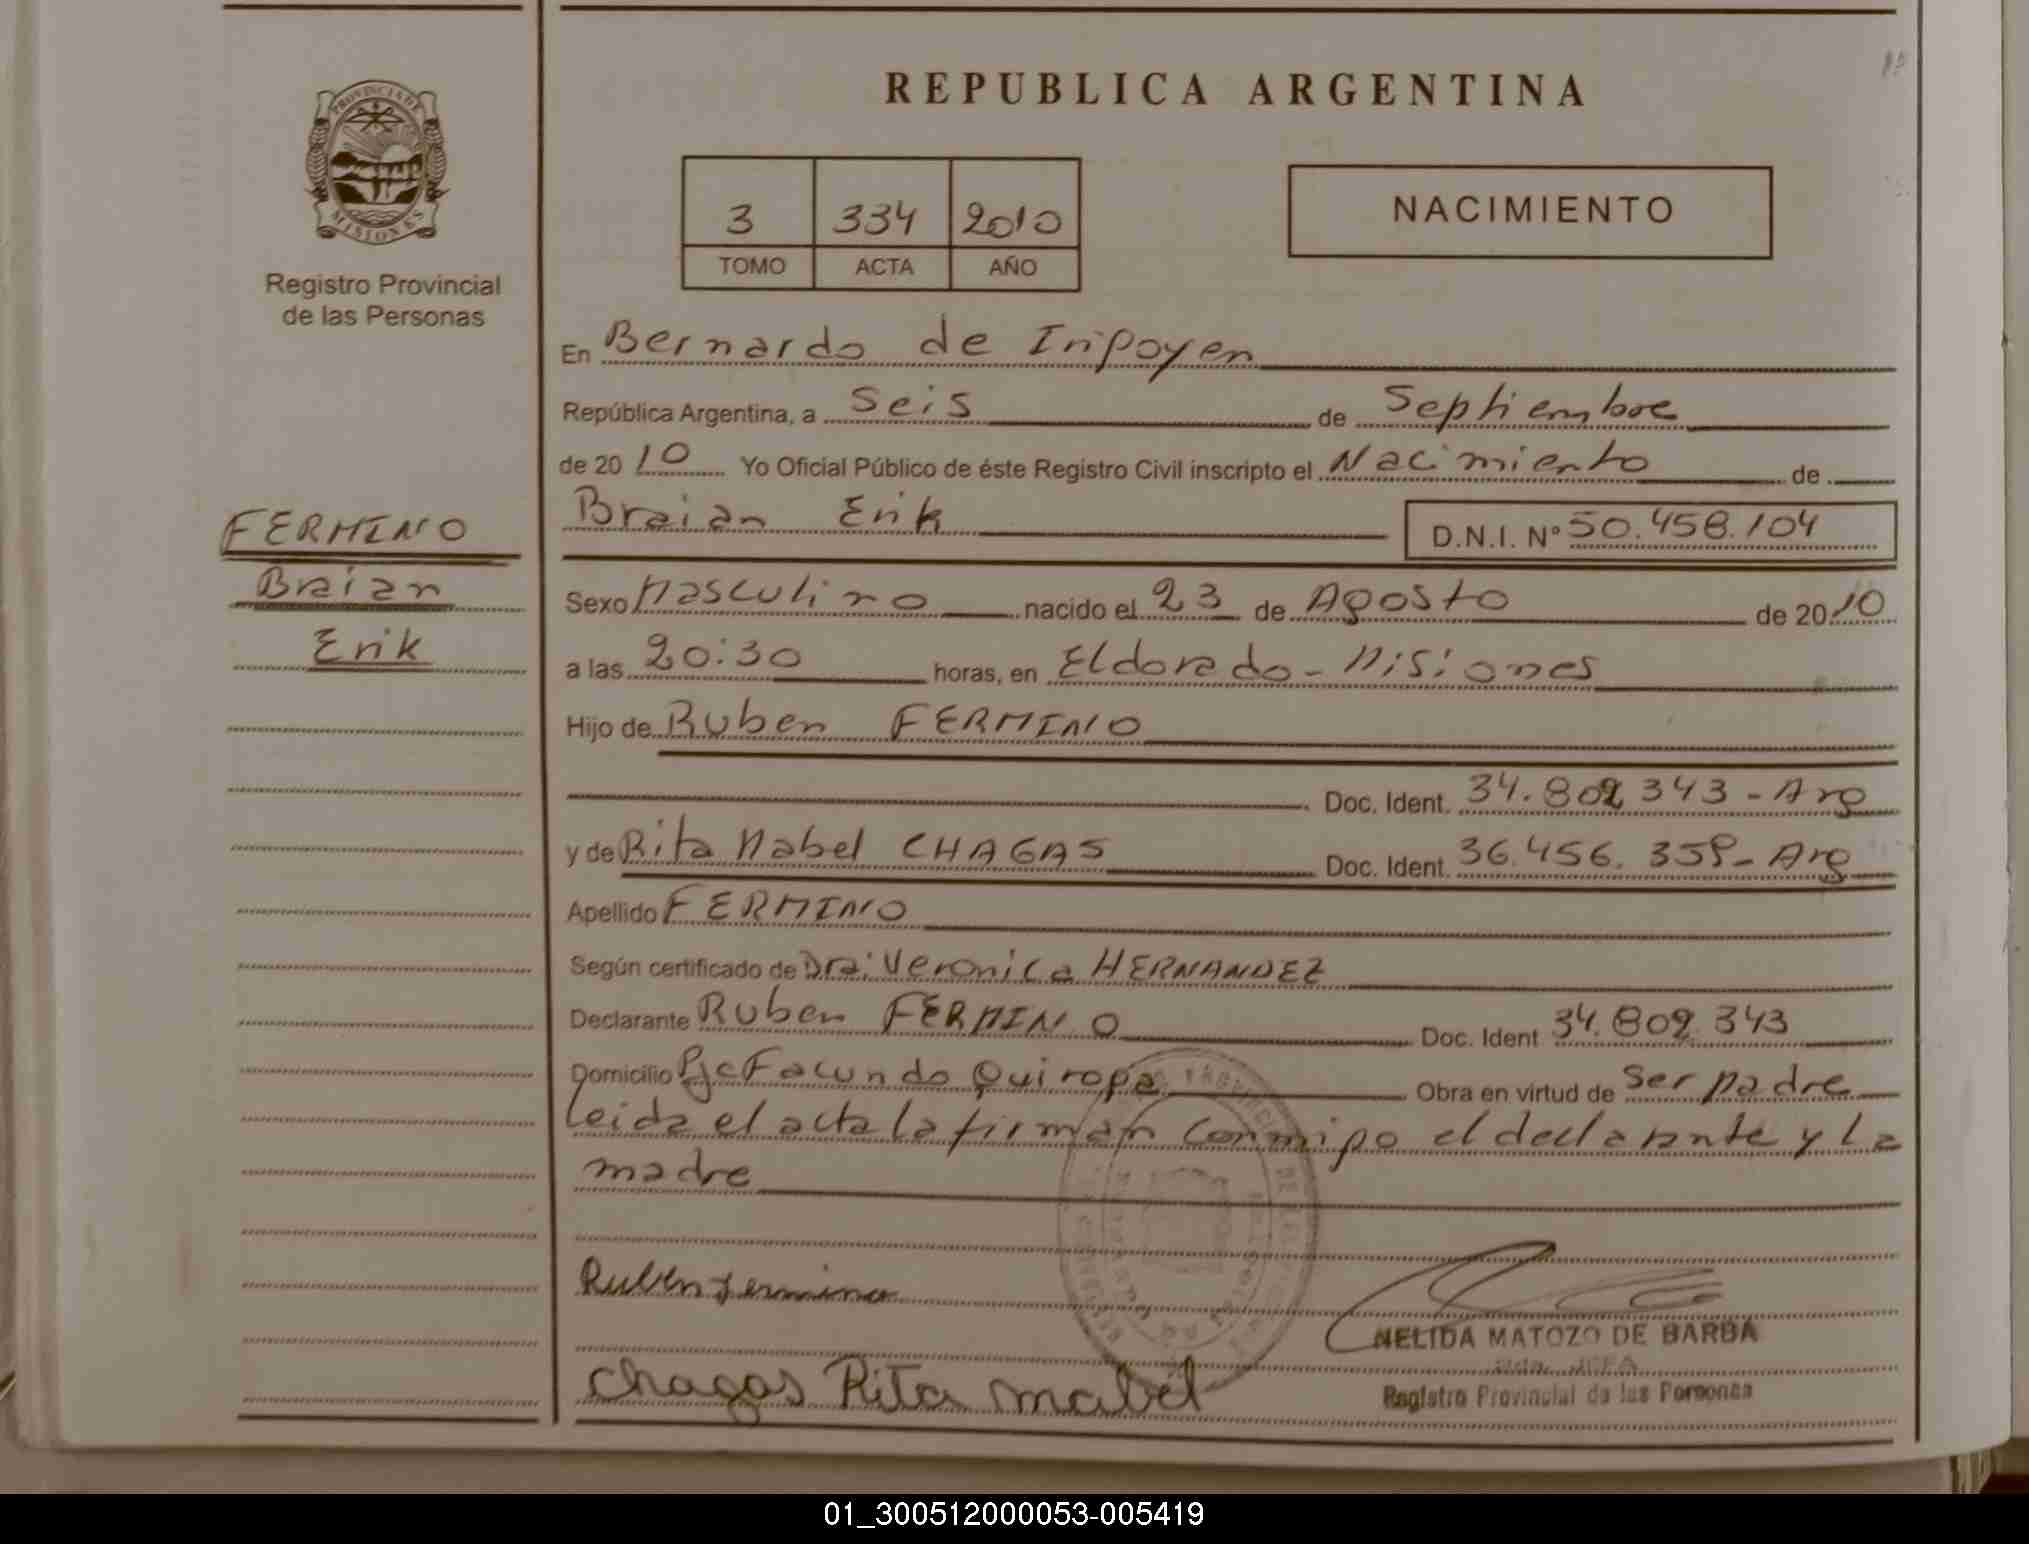 REPUBLICA ARGENTINA
PROVINCIA DE
MISIONES
Registro Provincial
de las Personas
3 334 2010
TOMO ACTA AÑO
NACIMIENTO
En Bernardo de Irigoyen
República Argentina, a Seis de Septiembre
de 2010 Yo Oficial Público de éste Registro Civil inscripto el Nacimiento de
Braian Erik D.N.I. Nº 50.458.104
FERMINO
Braian
Erik
Sexo Masculino nacido el 23 de Agosto de 2010
a las 20:30 horas, en Eldorado - Misiones
Hijo de Ruben FERMINO
Doc. Ident. 34.802.343 - Arg
y de Rita Mabel CHAGAS Doc. Ident. 36.456.359 - Arg
Apellido FERMINO
Según certificado de Dra: Veronica HERNANDEZ
Declarante Ruben FERMINO Doc. Ident 34.802.343
Domicilio Pje Facundo Quiroga Obra en virtud de Ser padre
Leida el acta la firman conmigo el declarante y la
madre
Ruben Fermino
Chagas Rita Mabel
NELIDA MATOZO DE BARBA
JEFA
Registro Provincial de las Personas
01_300512000053-005419